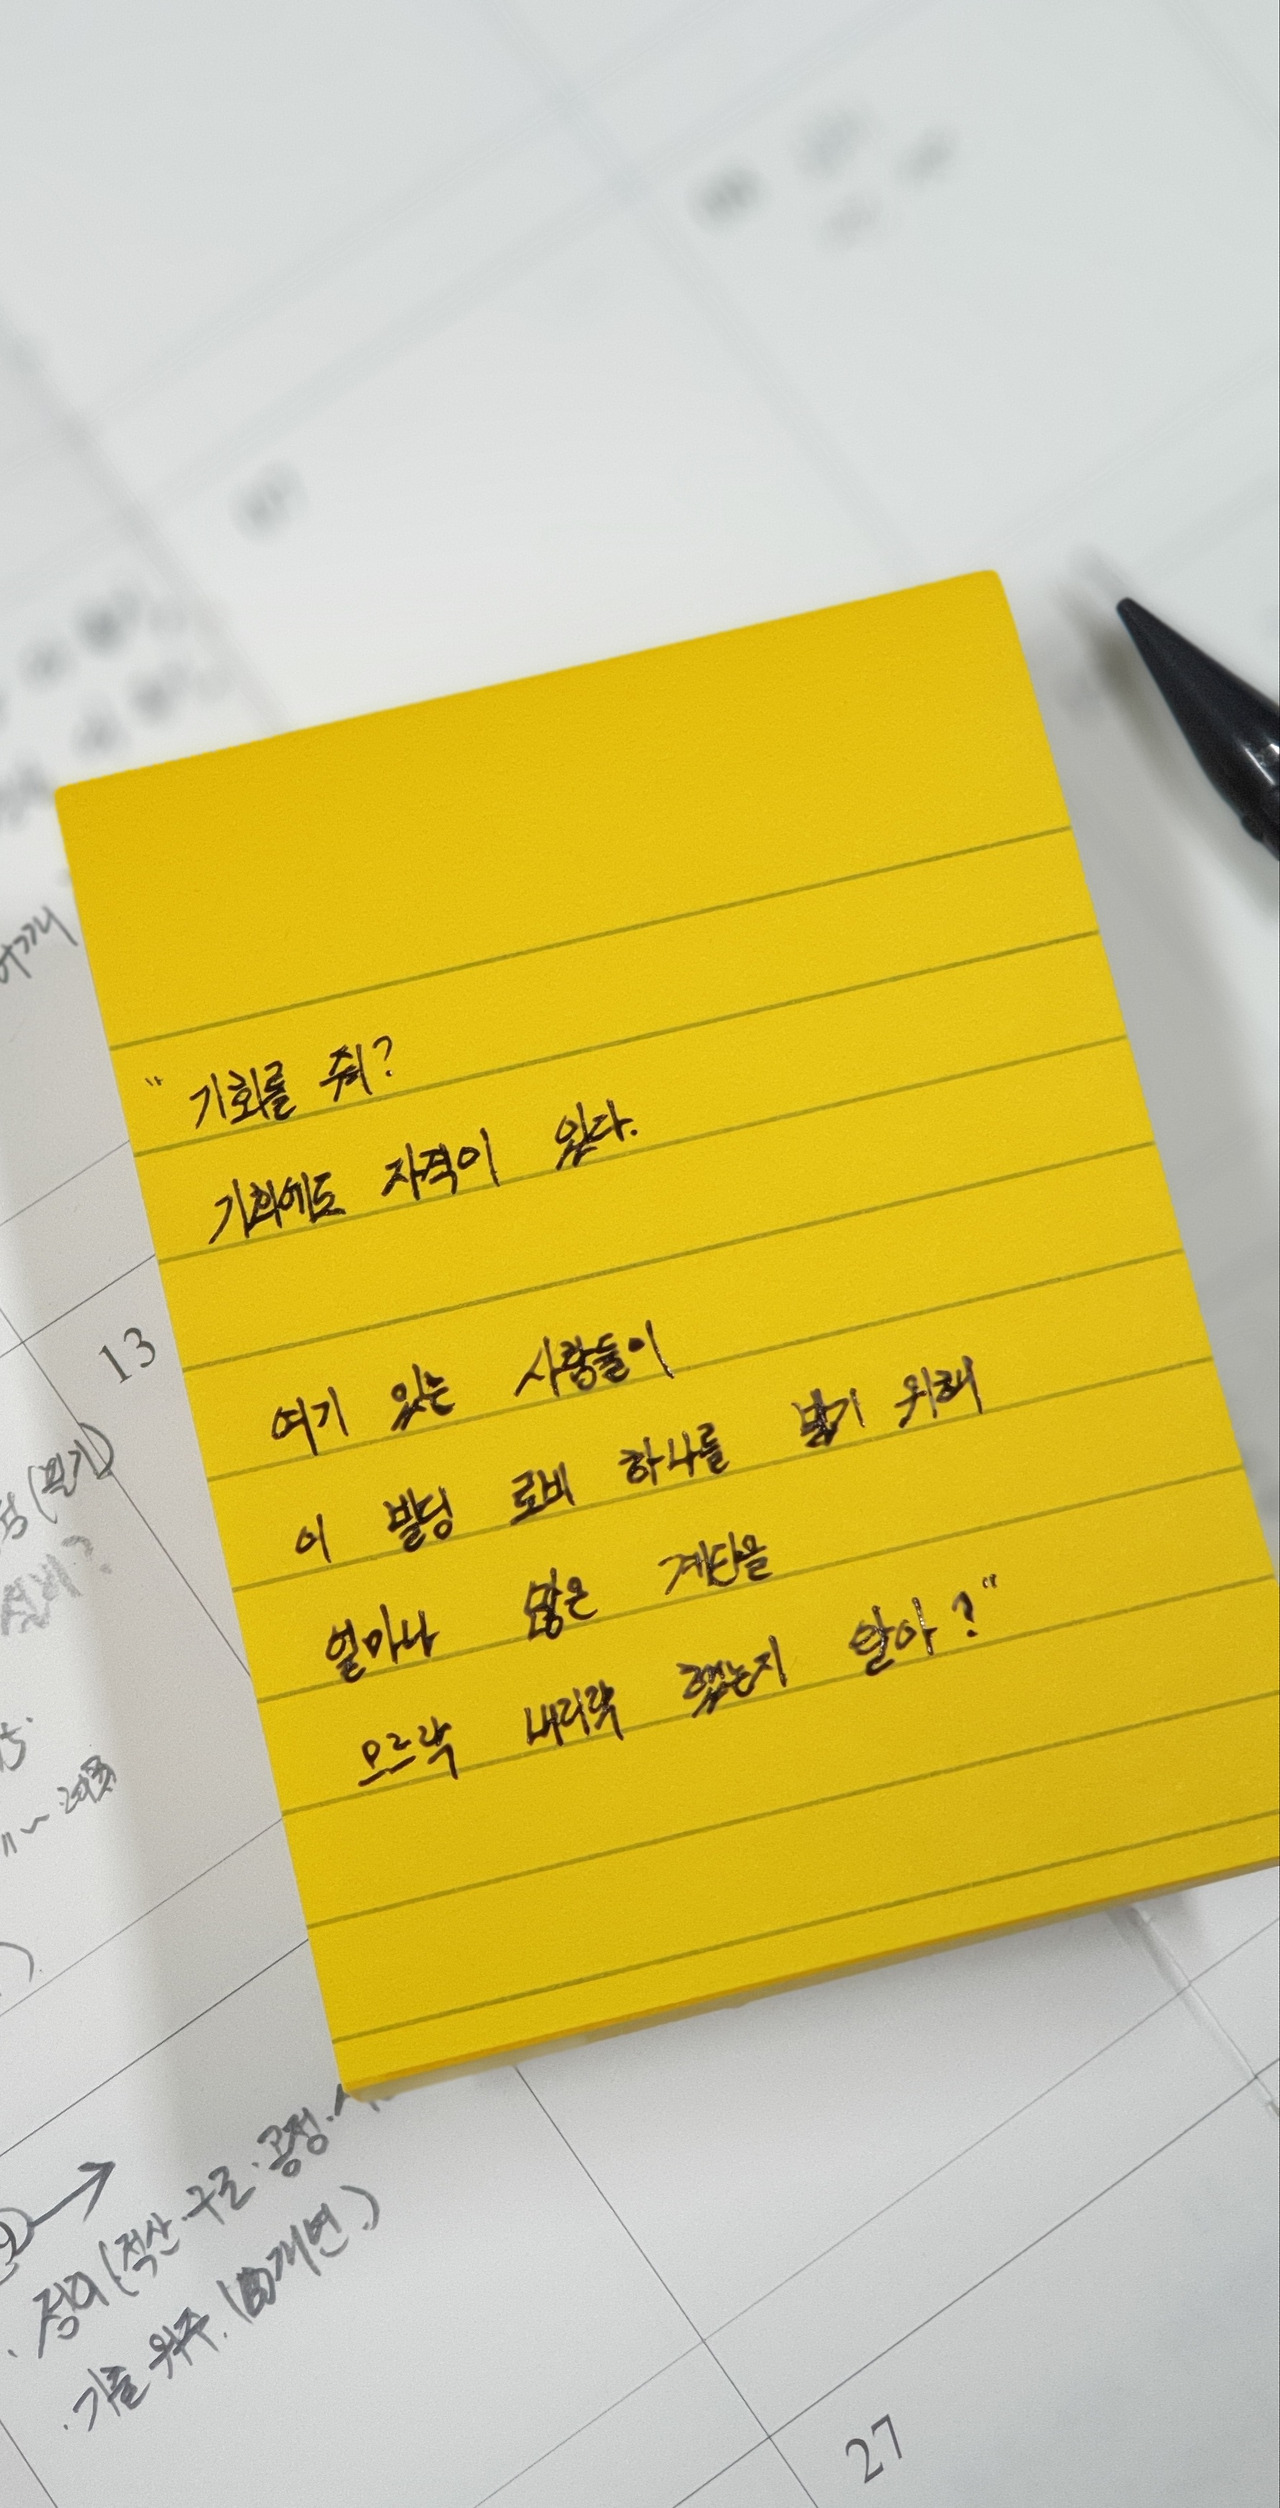 " 기회를 줘?
기회에도 자격이 있다.
여기 있는 사람들이
이 빌딩 로비 하나를 밟기 위해
얼마나 많은 계단을
오르락 내리락 했는지 알아?"
13
(필기)
정의 (적산.구조.공정.
.기출 위주. (
개변.)
27